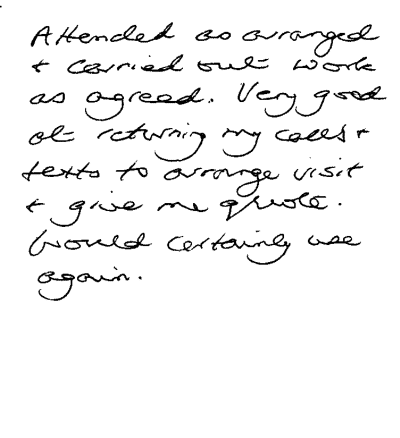 Attended as arranged
+ carried out work
as agreed. Very good
at returning my calls +
texts to arrange visit
+ give me quote.
Would certainly use
again.